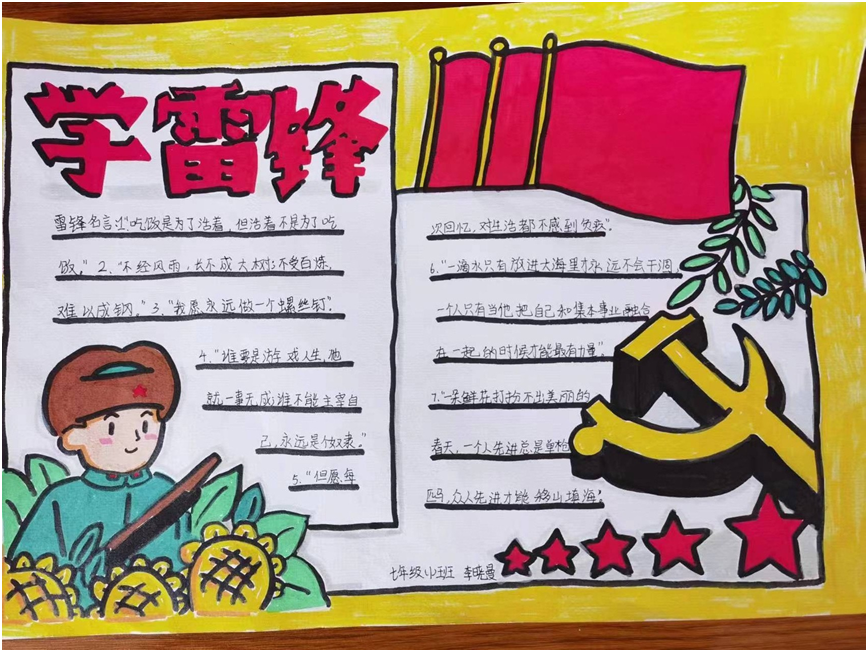 学雷锋
雷锋名言:1."吃饭是为了活着,但活着不是为了吃
饭。" 2."不经风雨,长不成大树;不受百炼,
难以成钢。" 3."我愿永远做一个螺丝钉".
4."谁要是游戏人生,他
就一事无成;谁不能主宰自
己,永远是个奴隶。"
5."但愿每
次回忆,对生活都不感到负疚".
6."一滴水只有放进大海里才永远不会干涸,
一个人只有当他把自己和集体事业融合
在一起的时候才能最有力量".
7."一朵鲜花打扮不出美丽的
春天,一个人先进总是单枪
匹马,众人先进才能移山填海".
七年级 班 李晓曼